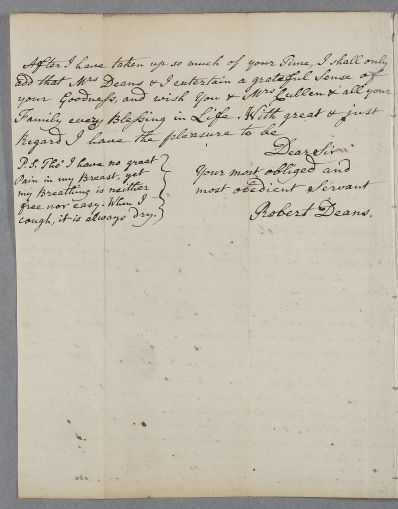 After I have taken up so much of your Time, I shall only
add that Mrs Deans & I entertain a grateful Sense of
your Goodness, and wish You & Mrs Cullen & all your
Family every Blessing in Life. With great & just
Regard I have the pleasure to be
Dear Sir
Your most obliged and
most obedient Servant
Robert Deans.
P.S. Tho' I have no great
Pain in my Breast, yet
my Breathing is neither
free nor easy. When I
cough, it is always dry.